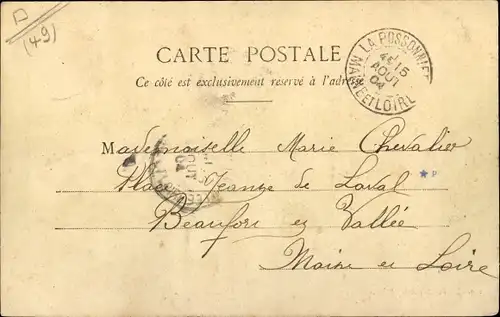 D
(49)
CARTE POSTALE
Ce côté est exclusivement réservé à l'adresse
LA POSSONNIÈRE
15
AOUT
04
MAINE ET LOIRE
Mademoiselle Marie Chevalier
Place Jeanne de Laval
Beaufort en Vallée
Maine et Loire